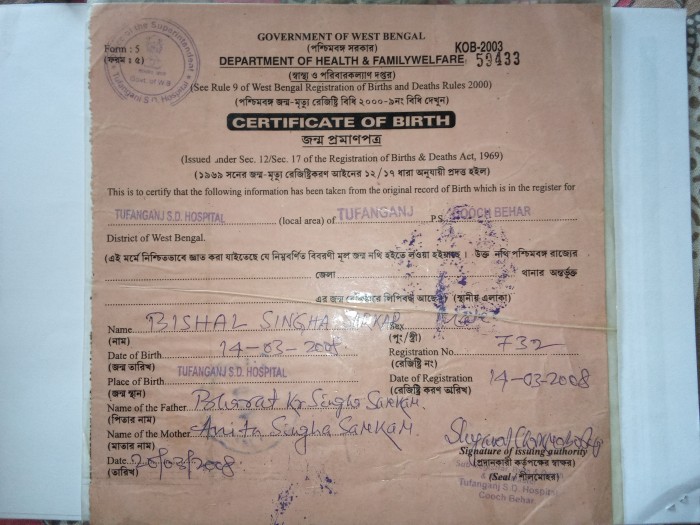 GOVERNMENT OF WEST BENGAL
Form : 5
(পশ্চিমবঙ্গ সরকার)
KOB-2003
(ফরম : ৫)
DEPARTMENT OF HEALTH & FAMILYWELFARE 59433
(স্বাস্থ্য ও পরিবারকল্যাণ দপ্তর)
(See Rule 9 of West Bengal Registration of Births and Deaths Rules 2000)
(পশ্চিমবঙ্গ জন্ম-মৃত্যু রেজিষ্ট্রি বিধি ২০০০-৯নং বিধি দেখুন)
CERTIFICATE OF BIRTH
জন্ম প্রমাণপত্র
(Issued under Sec. 12/Sec. 17 of the Registration of Births & Deaths Act, 1969)
(১৯৬৯ সনের জন্ম-মৃত্যু রেজিষ্ট্রিকরণ আইনের ১২/১৭ ধারা অনুযায়ী প্রদত্ত হইল)
This is to certify that the following information has been taken from the original record of Birth which is in the register for
TUFANGANJ S.D. HOSPITAL (local area) of TUFANGANJ P.S. COOCH BEHAR
District of West Bengal.
(এই মর্মে নিশ্চিতভাবে জ্ঞাত করা যাইতেছে যে নিম্নবর্ণিত বিবরণী মূল জন্ম নথি হইতে লওয়া হইয়াছে। উক্ত নথি পশ্চিমবঙ্গ রাজ্যের
জেলা থানার অন্তর্ভুক্ত
এর জন্ম লিপিবদ্ধ আছে। (স্থানীয় এলাকা)
Name BISHAL SINGHA SARKAR Sex Male
(নাম) (পুং/স্ত্রী)
Date of Birth 14-03-2008 Registration No. 732
(জন্ম তারিখ) (রেজিষ্ট্রি নং)
Place of Birth TUFANGANJ S.D. HOSPITAL Date of Registration 14-03-2008
(জন্ম স্থান) (রেজিষ্ট্রি করণ তারিখ)
Name of the Father Bharat Kr Singha Sarkar.
(পিতার নাম)
Name of the Mother Anita Singha Sarkar.
(মাতার নাম) Signature of issuing authority
Date 20/03/2008 (প্রদানকারী কর্তৃপক্ষের স্বাক্ষর)
(তারিখ) (Seal / শীলমোহর)
Tufanganj S.D. Hospital
Cooch Behar